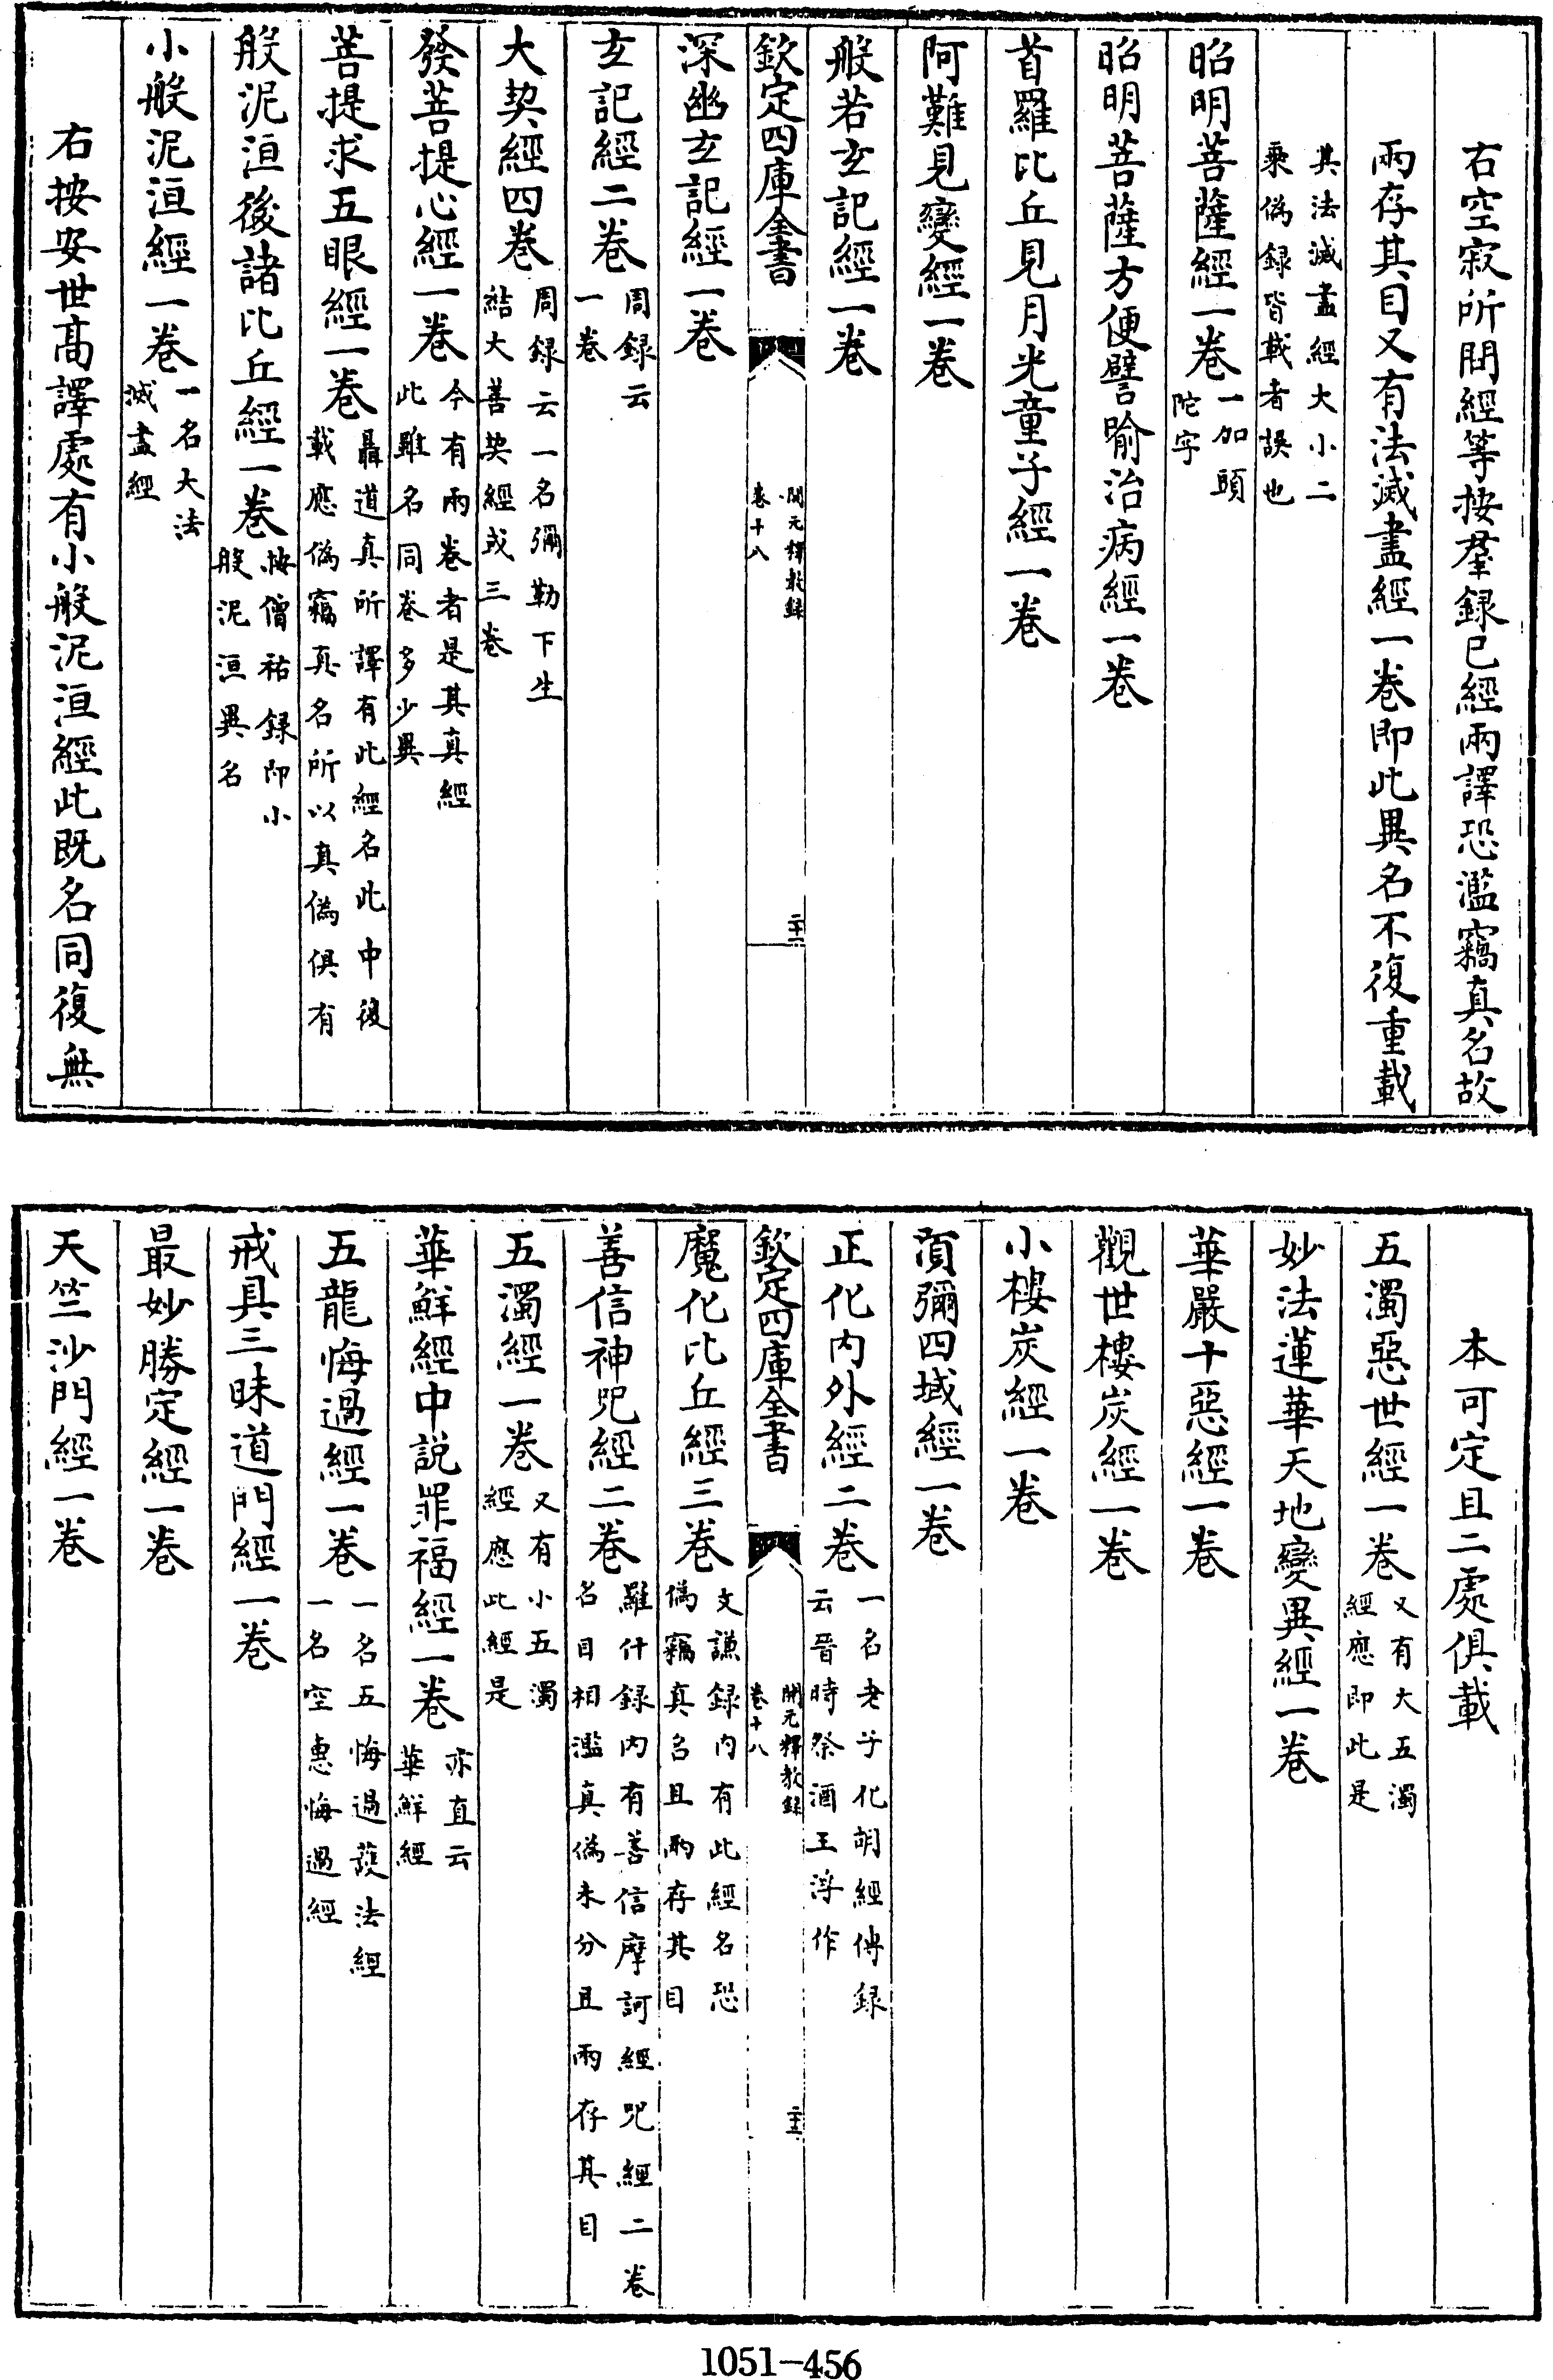 右空寂所問經等按羣録已經兩譯恐濫竊真名故
兩存其目又有法滅盡經一卷即此異名不復重載
其法滅盡經大小二
乘偽録皆載者誤也
昭明菩薩經一卷一加頭
陀字
昭明菩薩方便譬喻治病經一卷
首羅比丘見月光童子經一卷
阿難見變經一卷
般若玄記經一卷
欽定四庫全書
開元釋教録
卷十八
二十二
深幽玄記經一卷
玄記經二卷周録云
一卷
大契經四卷周録云一名彌勒下生
結大善契經或三卷
發菩提心經一卷今有兩卷者是其真經
此雖名同卷多少異
菩提求五眼經一卷聶道真所譯有此經名此中復
載應偽竊真名所以真偽俱有
般泥洹後諸比丘經一卷按僧祐録即小
般泥洹異名
小般泥洹經一卷一名大法
滅盡經
右按安世高譯處有小般泥洹經此既名同復無
本可定且二處俱載
五濁惡世經一卷又有大五濁
經應即此是
妙法蓮華天地變異經一卷
華嚴十惡經一卷
觀世樓炭經一卷
小樓炭經一卷
須彌四域經一卷
正化内外經二卷一名老子化胡經傳録
云晉時祭酒王浮作
欽定四庫全書
開元釋教録
卷十八
魔化比丘經三卷支謙録内有此經名恐
偽竊真名且兩存其目
善信神咒經二卷羅什録内有善信摩訶經咒經二卷
名目相濫真偽未分且兩存其目
五濁經一卷又有小五濁
經應此經是
華鮮經中説罪福經一卷亦直云
華鮮經
五龍悔過經一卷一名五悔過護法經
一名空惠悔過經
戒具三昧道門經一卷
最妙勝定經一卷
天竺沙門經一卷
1051-456